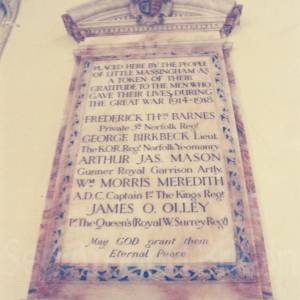 PLACED HERE BY THE PEOPLE
OF LITTLE MASSINGHAM AS
A TOKEN OF THEIR
GRATITUDE TO THE MEN WHO
GAVE THEIR LIVES DURING
THE GREAT WAR 1914-1918
FREDERICK THOS BARNES
Private 3rd Norfolk Regt
GEORGE BIRKBECK Lieut.
The K.O.R. Regt Norfolk Yeomanry
ARTHUR JAS. MASON
Gunner Royal Garrison Arty.
WM MORRIS MEREDITH
A.D.C. Captain 1st The Kings Regt
JAMES O. OLLEY
Pt The Queen's (Royal W. Surrey Regt)
May GOD grant them
Eternal Peace